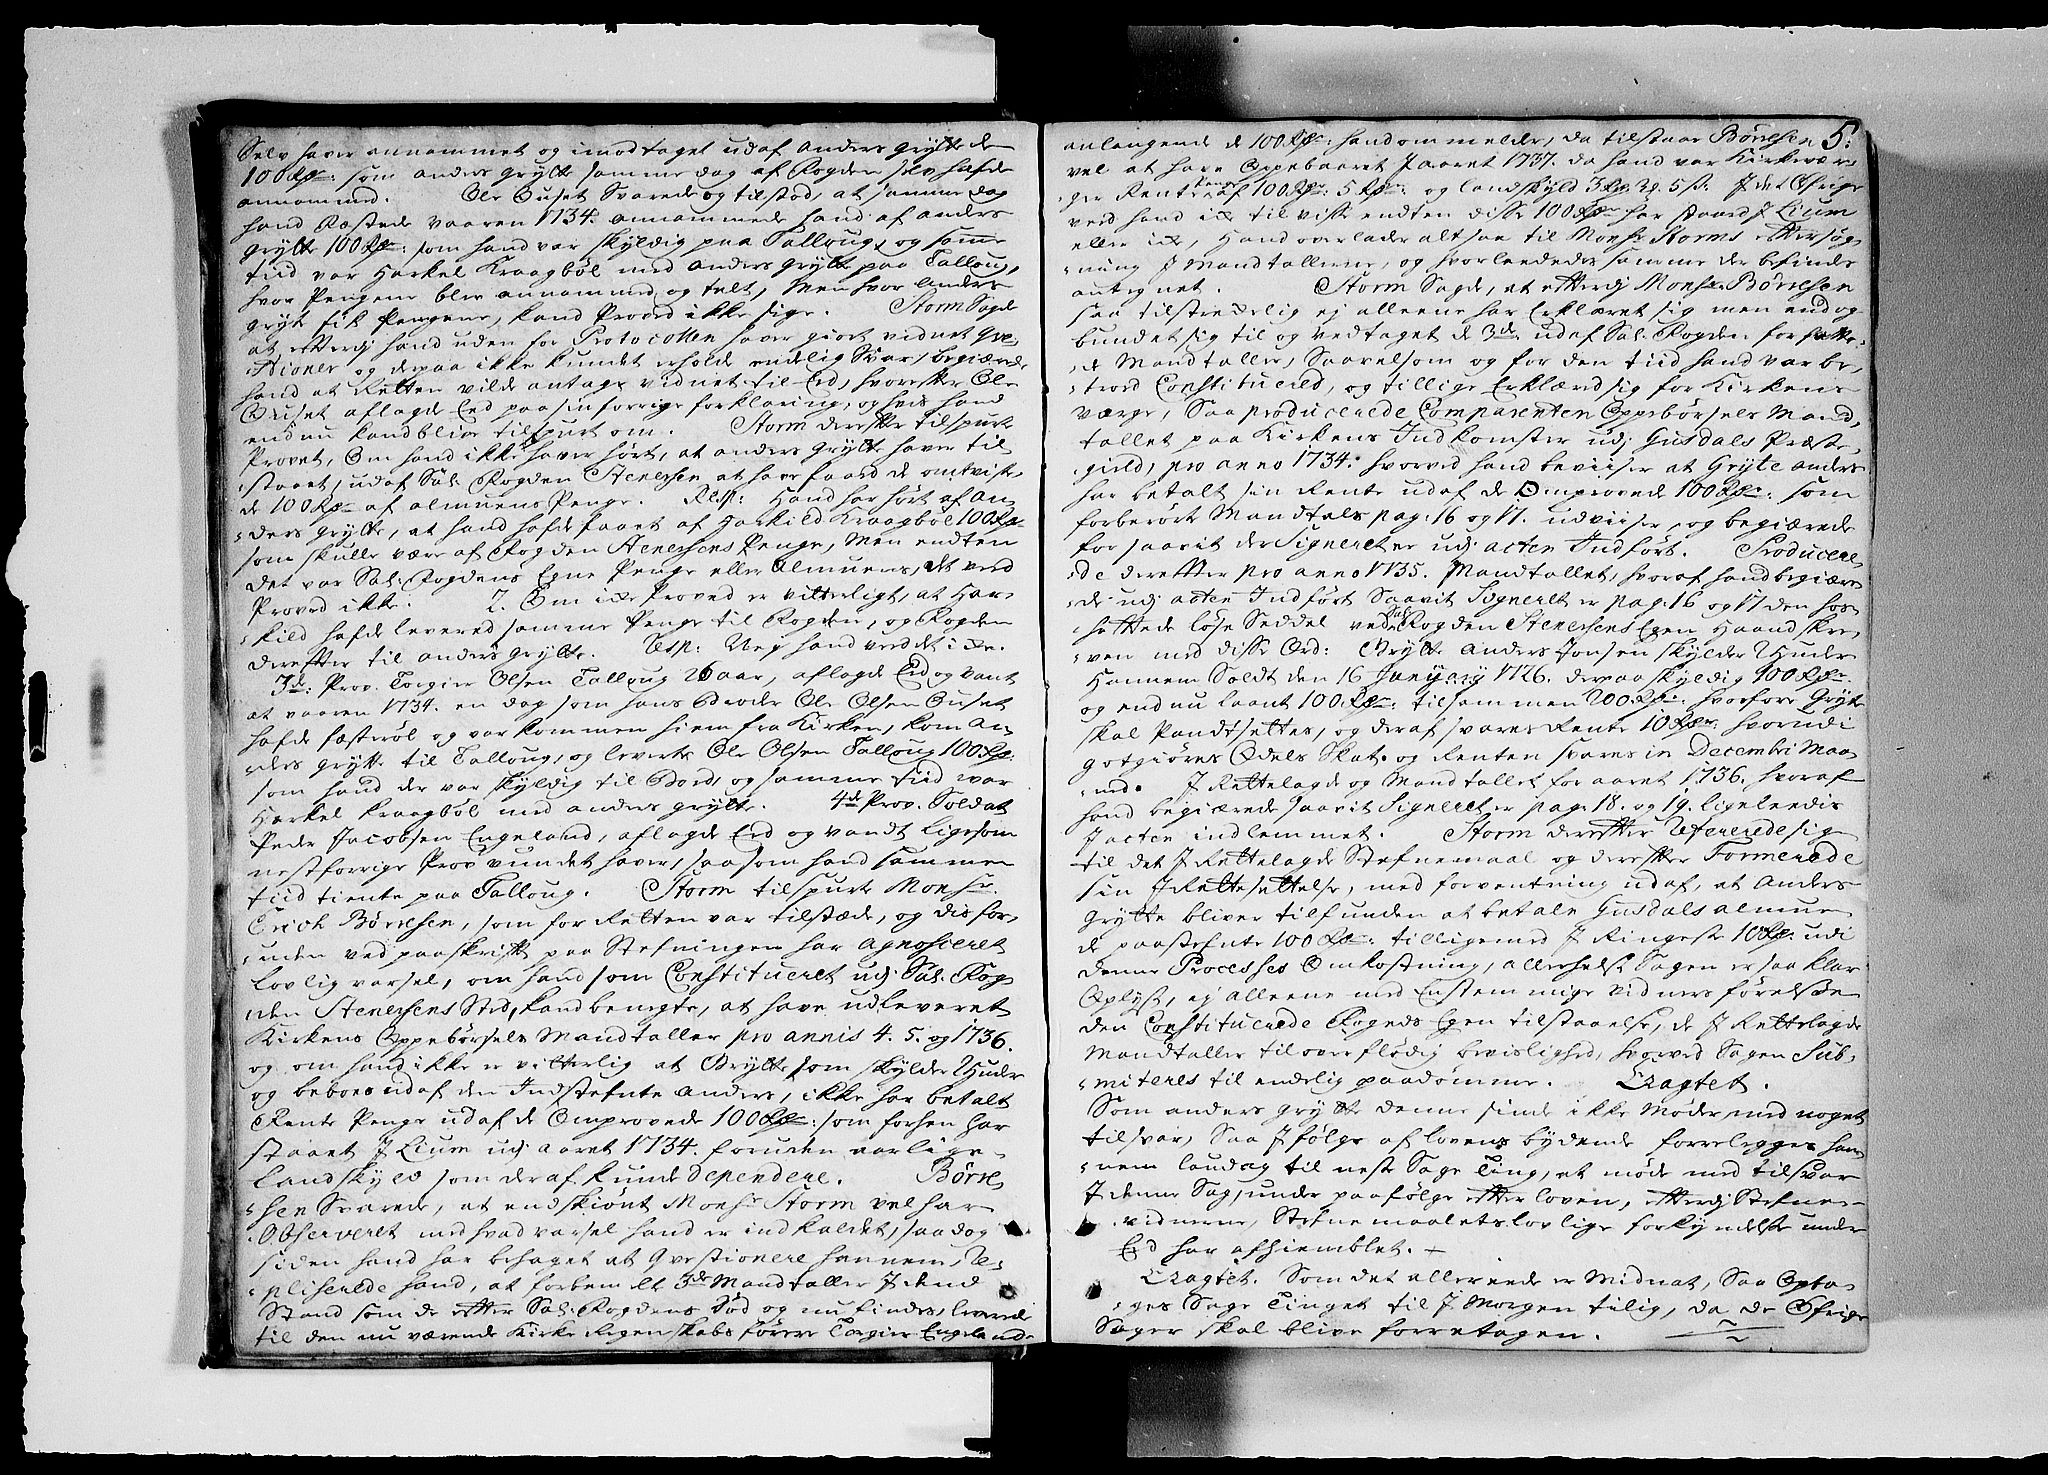 Selv haver annammet og imodtaget udaf Anders Grytte de
100 Rdr: som Anders Grytte samme dag af Fogden selv hafde
annammed. Ole Buset Svarede og tilstod, at samme dag
hand Fæstede vaaren 1734. annammede hand af Anders
Grytte 100 Rdr: som hand var skyldig paa Talloug, og samme
tiid var Harkel Kraagbøl med Anders Grytte paa Talloug,
hvor Pengene blev annammed og talt, Men hvor Anders
Gryt fik Pengene, kand Proved ikke sige. Storm Sagde
at efterdj hand uden for Protocollen haver giort vidnet Qve-
stioner og derpaa ikke kundet erholde endelig Svar, begiærede
hand at Retten vilde antage vidnet til Eed, hvorefter Ole
Buset aflagde Eed paa sin forrige forklaring, og hvis hand
endnu kand blive tilspurt om. Storm derefter tilspurte
Provet, Om hand ikke haver hørt, at Anders Grytte haver til-
staaet, udaf Sal: Fogden Stenersen at have faaed de omtviste-
de 100 Rdr af almuens Penge. Resp: Hand har hørt af An-
ders Grytte, at hand hafde faaet af Harkild Kraagbøl 100 Rdr
som skulle være af Fogden Stenersens Penge, Men endten
det var Sal: Fogdens Egne Penge eller Almuens, det veed
Proved ikke. 2. Om ike Proved er vitterligt, at Har-
kild hafde levered samme Penge til Fogden, og Fogden
derefter til Anders Grytte. Resp: Nej hand veed det ike.
3de: Prov. Torgier Olsen Talloug 26 aar, aflagde Eed og vant
at vaaren 1734. en dag som hans Broder Ole Olsen Buset
hafde fæsterøl og var kommen hiem fra Kirken, kom An-
ders Grytte til Talloug, og leverte Ole Olsen Talloug 100 Rdr:
som hand der var skyldig til Bord, og samme tiid var
Harkel Kraagbøl med Anders Grytte. 4de Prov. Soldat
Peder Jacobsen Engeland, aflagde Eed og vandt ligesom
nestforrige Prov vundet haver, saasom hand sammen
tiid tiente paa Talloug. Storm tilspurte Monsr.
Erich Børresen, som for Retten var tilstæde, og dis for-
uden ved paaskrift paa Stefningen har agnosceret
lovlig varsel, om hand som Constitueret udj Sal: Fog-
den Stenersens Sted, kand benegte, at have udleveret
Kirkens Oppebørsels Mandtaller pro annis 4. 5. og 1736.
og om hand ikke er vitterlig at Grytte, som skylder 1 hude
og beboes udaf den Indstefnte Anders, ikke har betalt
Rente Penge udaf de Omprovede 100 Rdr: som forhen har
staaet J Lium udj aaret 1734. foruden aarlige
Landskyld som deraf kunde dependere. Børre-
sen Svarede, at endskiønt Monsr Storm vel har
Observeret med hvad varsel hand er indkaldet, saa dog
siden hand har behaget at Qvestionere hannem, Re-
pliserede hand, at forbemelte 3de Mandtaller J dend
Stand som de efter Sal: Fogdens Død og nu findes, leverede
til den nu værende Kirke Regenskabs førere Torgier Engeland.
5:
anlangende de 100 Rdr: hand ommelder, da tilstaar Børresen
vel at have Oppebaaret J aaret 1737. da hand var Kirkevær-
ger Rente Penge af 100 Rdr: 5 Rdr: og landskyld J det Øfrige
veed hand ike til visse endten disse 100 Rdr har staaed J Lium
eller ike, Hand overlader altsaa til Monsr Storms eftersøg-
ning J Mandtallerne, og hvorleedes samme der befindes
antegnet. Storm Sagde, at efterdj Monsr Børresen
saa tilstrekelig ej alleene har Erklæret sig men endog
bundet sig til og vedtaget de 3de udaf Sal: Fogden forfatte-
de Mandtaller, Saavelsom og for den tiid hand var be-
troed Constituered, og tillige Erklæred sig for Kirkens
værge, Saa producerede Comparenten Oppebørsels Mand-
tallet paa Kirkens Indkomster udj Gusdals Præste-
gield, pro anno 1734. hvorved hand beviiser at Gryte Anders
har betalt sin Rente udaf de Omprovede 100 Rdr: som
forberørte Mandtals pag: 16 og 17. udviiser, og begiærede
for saavit der Signeret er udj acten Indført. Producere-
de derefter pro anno 1735. Mandtallet, hvoraf hand begiære-
de udj acten Indført Saavit Signeret er pag: 16 og 17 den hos-
heftede løse Seddel ved Sal: Fogden Stenersens Egen Haand skre-
ven med disse Ord: Grytte Anders Jonsen skylder 1 Hude
Hannem Soldt den 16 January 1726. derpaa skyldig 100 Rdr.
og endnu laant 100 Rdr: tilsammen 200 Rdr: hvorfore Gryte
skal Pandtsettes, og deraf svares Rente 10 Rdr: hvorudi
gotgiøres Odels Skat. og Renten svares in Decembri Maa-
ned. J Rettelagde og Mandtallet for aaret 1736. hvoraf
hand begiærede saavit Signeret er pag: 18. og 19. ligeleedis
J acten indlemmet. Storm derefter refererede sig
til det J Rettelagde Stefnemaal og derefter Formerede
sin J Rettesettelse, med forventning udaf, at Anders
Grytte bliver tilfunden at betale Gusdals almue
de paastefnte 100 Rdr: tilligemed J Ringeste 10 Rdr: udi
denne Processes Omkostning, allerhelst Sagen er saa klar
Oplyst, ej alleene med Enstemmige vidners førelse
den Constituerede Fogeds Egen tilstaaelse, de J Rettelagde
Mandtaller til overflødig bevislighed, hvorved Sagen Sub-
miteres til endelig paadømme. Eragtet.
Som Anders Grytte denne sinde ikke Møder med noget
tilsvar, Saa J følge af lovens bydende forrelegges han-
nem laudag til neste Sage Ting, at møde med tilsvar
J denne Sag, under paafølge efter loven, efterdj Stefne-
vidnerne, Stefnemaalets lovlige forkyndelse under
Eed har afhiemblet.
Eragtet. Som det allereede er Midnat, Saa Opta-
ges Sage Tinget til J Morgen tilig, da de Øfrige
Sager skal blive forretagen.